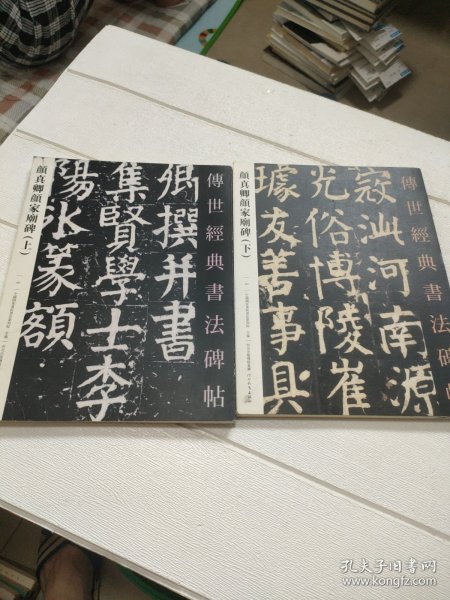 傳世經典書法碑帖
卿撰并書
集賢學士李
陽冰篆額
顏真卿顏家廟碑(上)
傳世經典書法碑帖
寇泚河南源
光俗博陵崔
璩友善事具
顏真卿顏家廟碑(下)
孔夫子旧书网
www.kongfz.com